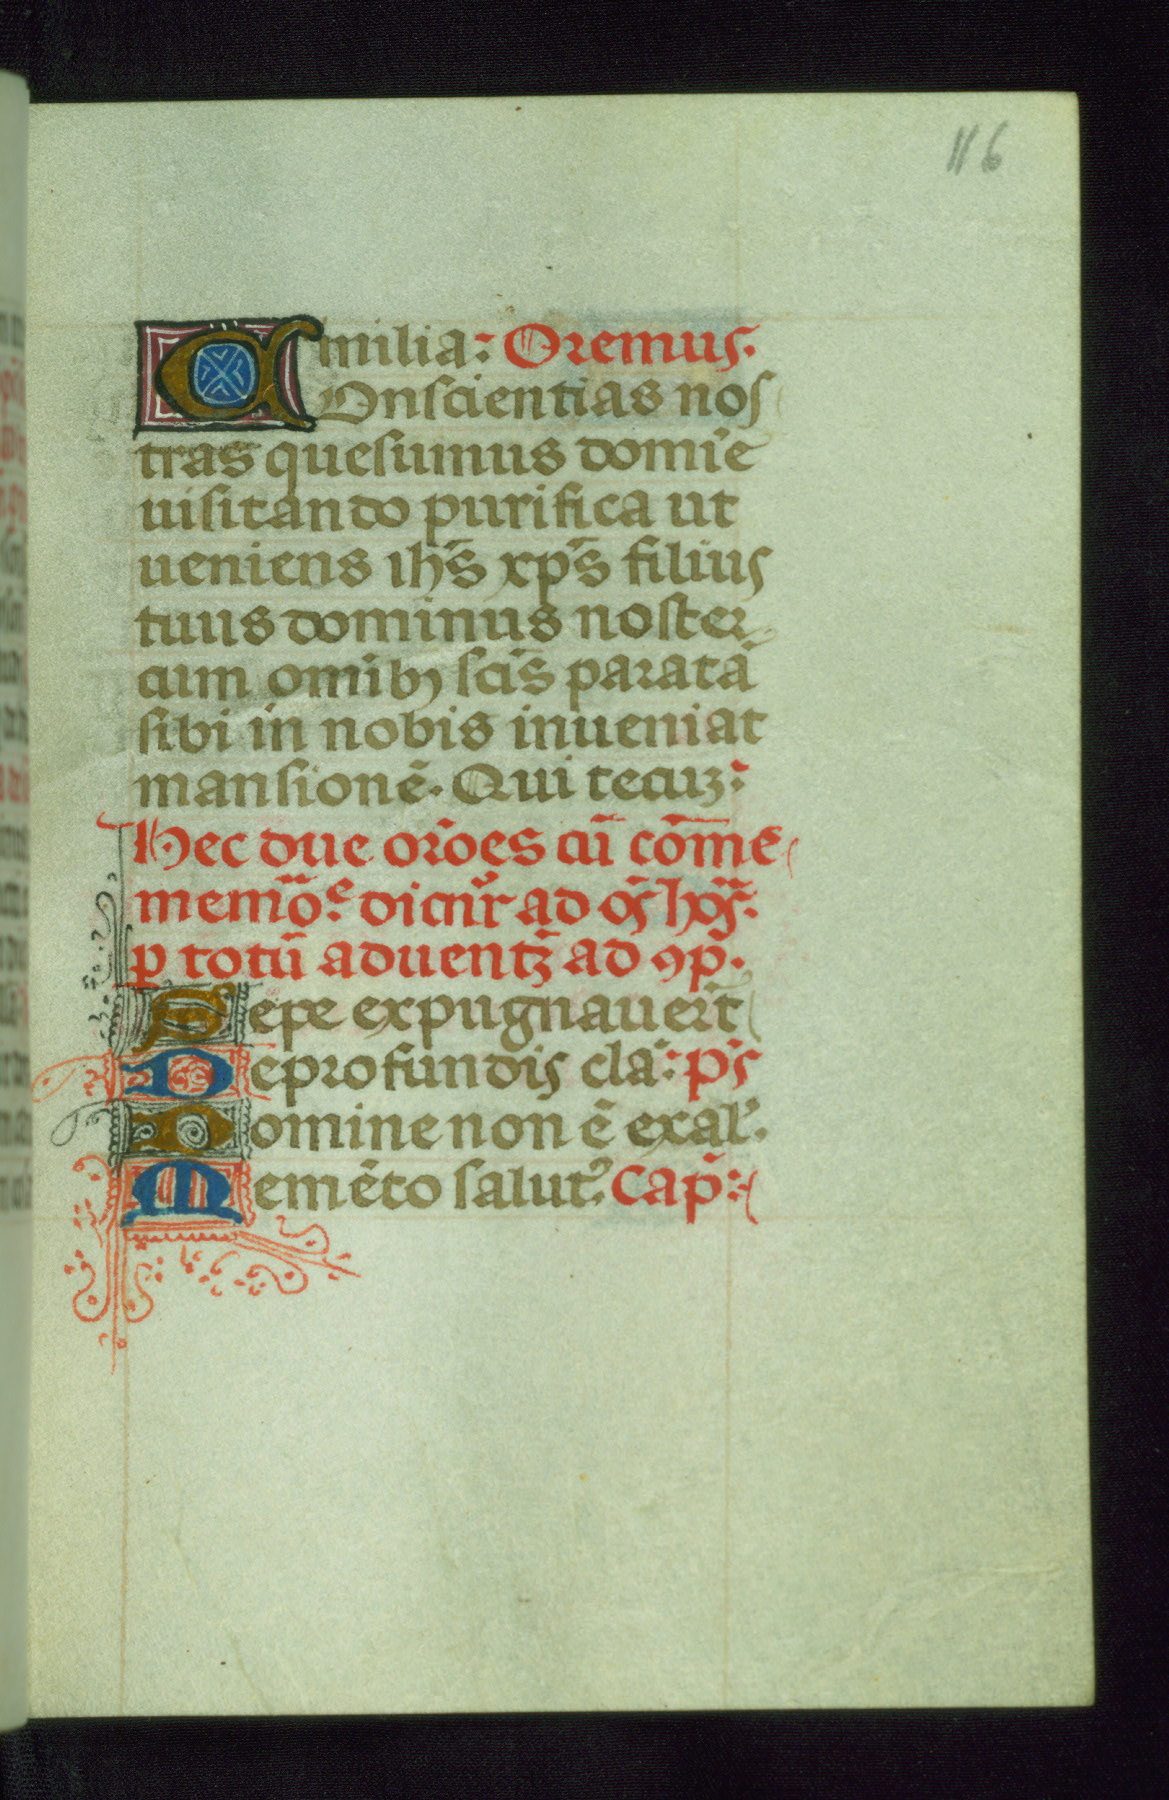 116
milia: Oremus.
Conscientias nos
tras quesumus domīe
uisitando purifica ut
ueniens ihs̄ xps̄ filius
tuus dominus noster
cum omīb9 scīs paratā
sibi in nobis inueniat
mansionē. Qui tecuz:
Hec due orōes cū cōme
memōe dicūtr ad oēs hōs.
p totū aduentz ad 9p.
Sepe expugnauerīt
Deprofundis cla: ps̄
Domine non ē exal.
Memēto salut. Cap: